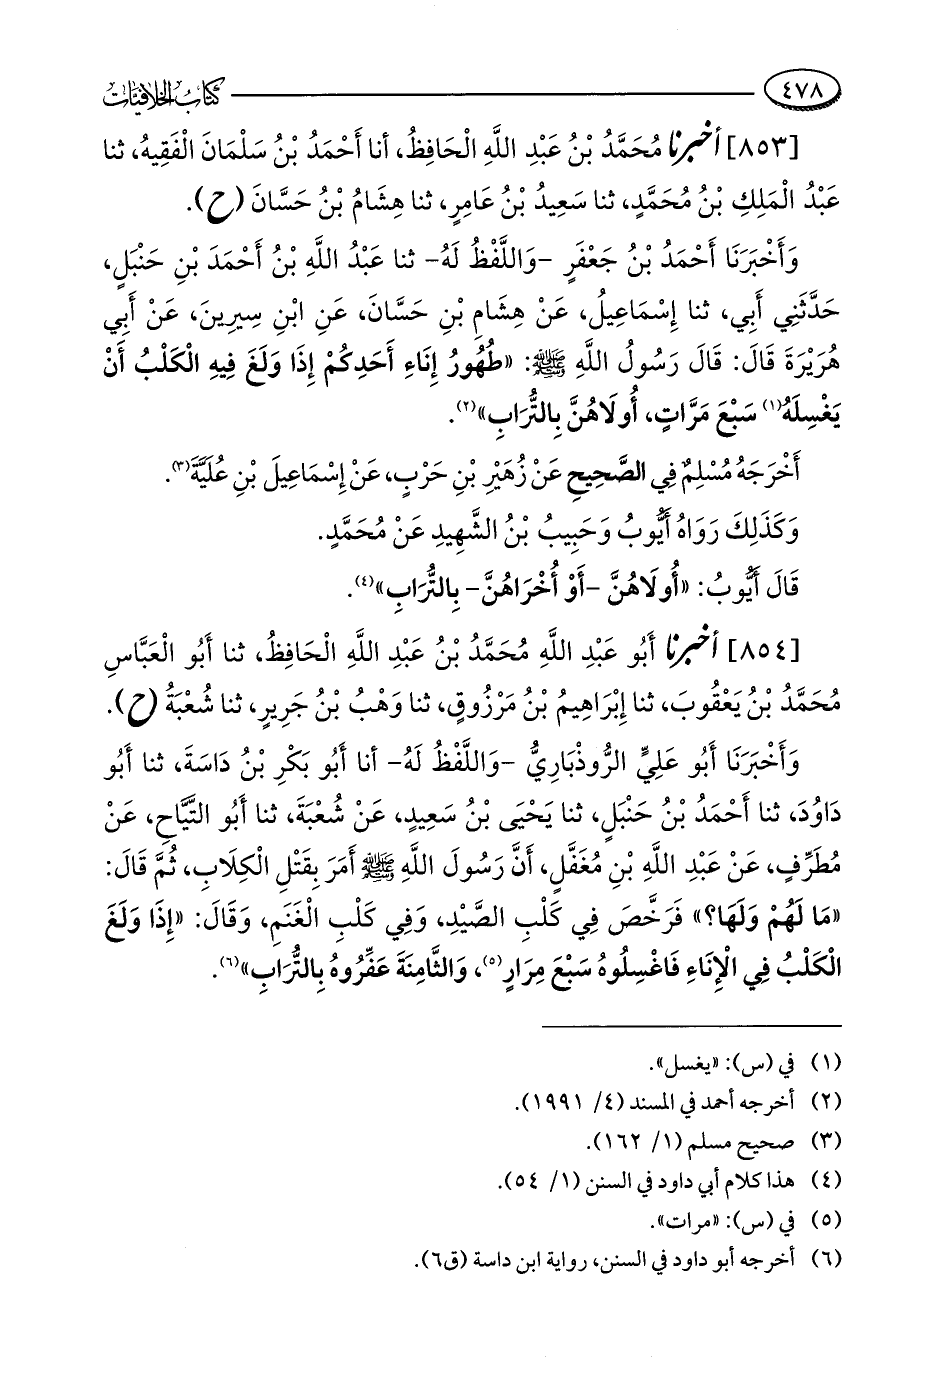 ٤٧٨ كتاب الخلافيات
[٨٥٣] أخبرنا مُحَمَّدُ بْنُ عَبْدِ اللَّهِ الْحَافِظُ، أنا أَحْمَدُ بْنُ سَلْمَانَ الْفَقِيهُ، ثنا
عَبْدُ الْمَلِكِ بْنُ مُحَمَّدٍ، ثنا سَعِيدُ بْنُ عَامِرٍ، ثنا هِشَامُ بْنُ حَسَّانَ (ح).
وَأَخْبَرَنَا أَحْمَدُ بْنُ جَعْفَرٍ -وَاللَّفْظُ لَهُ- ثنا عَبْدُ اللَّهِ بْنُ أَحْمَدَ بْنِ حَنْبَلٍ،
حَدَّثَنِي أَبِي، ثنا إِسْمَاعِيلُ، عَنْ هِشَامِ بْنِ حَسَّانَ، عَنِ ابْنِ سِيرِينَ، عَنْ أَبِي
هُرَيْرَةَ قَالَ: قَالَ رَسُولُ اللَّهِ ﷺ: «طُهُورُ إِنَاءِ أَحَدِكُمْ إِذَا وَلَغَ فِيهِ الْكَلْبُ أَنْ
يَغْسِلَهُ(١) سَبْعَ مَرَّاتٍ، أُولَاهُنَّ بِالتُّرَابِ»(٢).
أَخْرَجَهُ مُسْلِمٌ فِي الصَّحِيحِ عَنْ زُهَيْرِ بْنِ حَرْبٍ، عَنْ إِسْمَاعِيلَ بْنِ عُلَيَّةَ(٣).
وَكَذَلِكَ رَوَاهُ أَيُّوبُ وَحَبِيبُ بْنُ الشَّهِيدِ عَنْ مُحَمَّدٍ.
قَالَ أَيُّوبُ: «أُولَاهُنَّ -أَوْ أُخْرَاهُنَّ- بِالتُّرَابِ»(٤).
[٨٥٤] أخبرنا أَبُو عَبْدِ اللَّهِ مُحَمَّدُ بْنُ عَبْدِ اللَّهِ الْحَافِظُ، ثنا أَبُو الْعَبَّاسِ
مُحَمَّدُ بْنُ يَعْقُوبَ، ثنا إِبْرَاهِيمُ بْنُ مَرْزُوقٍ، ثنا وَهْبُ بْنُ جَرِيرٍ، ثنا شُعْبَةُ (ح).
وَأَخْبَرَنَا أَبُو عَلِيٍّ الرُّوذْبَارِيُّ -وَاللَّفْظُ لَهُ- أنا أَبُو بَكْرِ بْنُ دَاسَةَ، ثنا أَبُو
دَاوُدَ، ثنا أَحْمَدُ بْنُ حَنْبَلٍ، ثنا يَحْيَى بْنُ سَعِيدٍ، عَنْ شُعْبَةَ، ثنا أَبُو التَّيَّاحِ، عَنْ
مُطَرِّفٍ، عَنْ عَبْدِ اللَّهِ بْنِ مُغَفَّلٍ، أَنَّ رَسُولَ اللَّهِ ﷺ أَمَرَ بِقَتْلِ الْكِلَابِ، ثُمَّ قَالَ:
«مَا لَهُمْ وَلَهَا؟» فَرَخَّصَ فِي كَلْبِ الصَّيْدِ، وَفِي كَلْبِ الْغَنَمِ، وَقَالَ: «إِذَا وَلَغَ
الْكَلْبُ فِي الْإِنَاءِ فَاغْسِلُوهُ سَبْعَ مِرَارٍ(٥)، وَالثَّامِنَةَ عَفِّرُوهُ بِالتُّرَابِ»(٦).
(١) في (س): «يغسل».
(٢) أخرجه أحمد في المسند (٤/ ١٩٩١).
(٣) صحيح مسلم (١/ ١٦٢).
(٤) هذا كلام أبي داود في السنن (١/ ٥٤).
(٥) في (س): «مرات».
(٦) أخرجه أبو داود في السنن، رواية ابن داسة (ق٦).